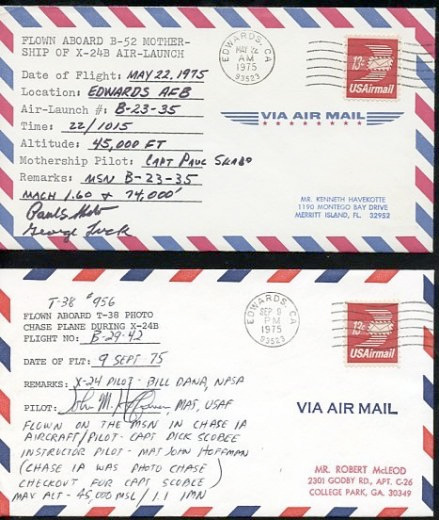 FLOWN ABOARD B-52 MOTHER-
SHIP OF X-24B AIR-LAUNCH
Date of Flight: MAY 22, 1975
Location: EDWARDS AFB
Air-Launch #: B-23-35
Time: 22/1015
Altitude: 45,000 FT
Mothership Pilot: CAPT PAUL
Remarks: MSN B-23-35
MACH 1.60 + 74,000'
EDWARDS, CA
MAY 22
AM
1975
93523
13c
USAirmail
VIA AIR MAIL
MR. KENNETH HAVEKOTTE
1190 MONTEGO BAY DRIVE
MERRITT ISLAND, FL. 32952
T-38 #956
FLOWN ABOARD T-38 PHOTO
CHASE PLANE DURING X-24B
FLIGHT NO: B-29-42
DATE OF FLT: 9 SEPT 75
REMARKS: X-24 PILOT - BILL DANA, NASA
PILOT: John M. Hoffman, MAJ, USAF
FLOWN ON THE MSN IN CHASE 1A
AIRCRAFT/PILOT - CAPT DICK SCOBEE
INSTRUCTOR PILOT - MAJ JOHN HOFFMAN
(CHASE 1A WAS PHOTO CHASE
CHECKOUT FOR CAPT SCOBEE)
MAX ALT - 45,000 MSL / 1.1 IMN
EDWARDS, CA
SEP 9
PM
1975
93523
13c
USAirmail
VIA AIR MAIL
MR. ROBERT McLEOD
2301 GODBY RD., APT. C-26
COLLEGE PARK, GA. 30349